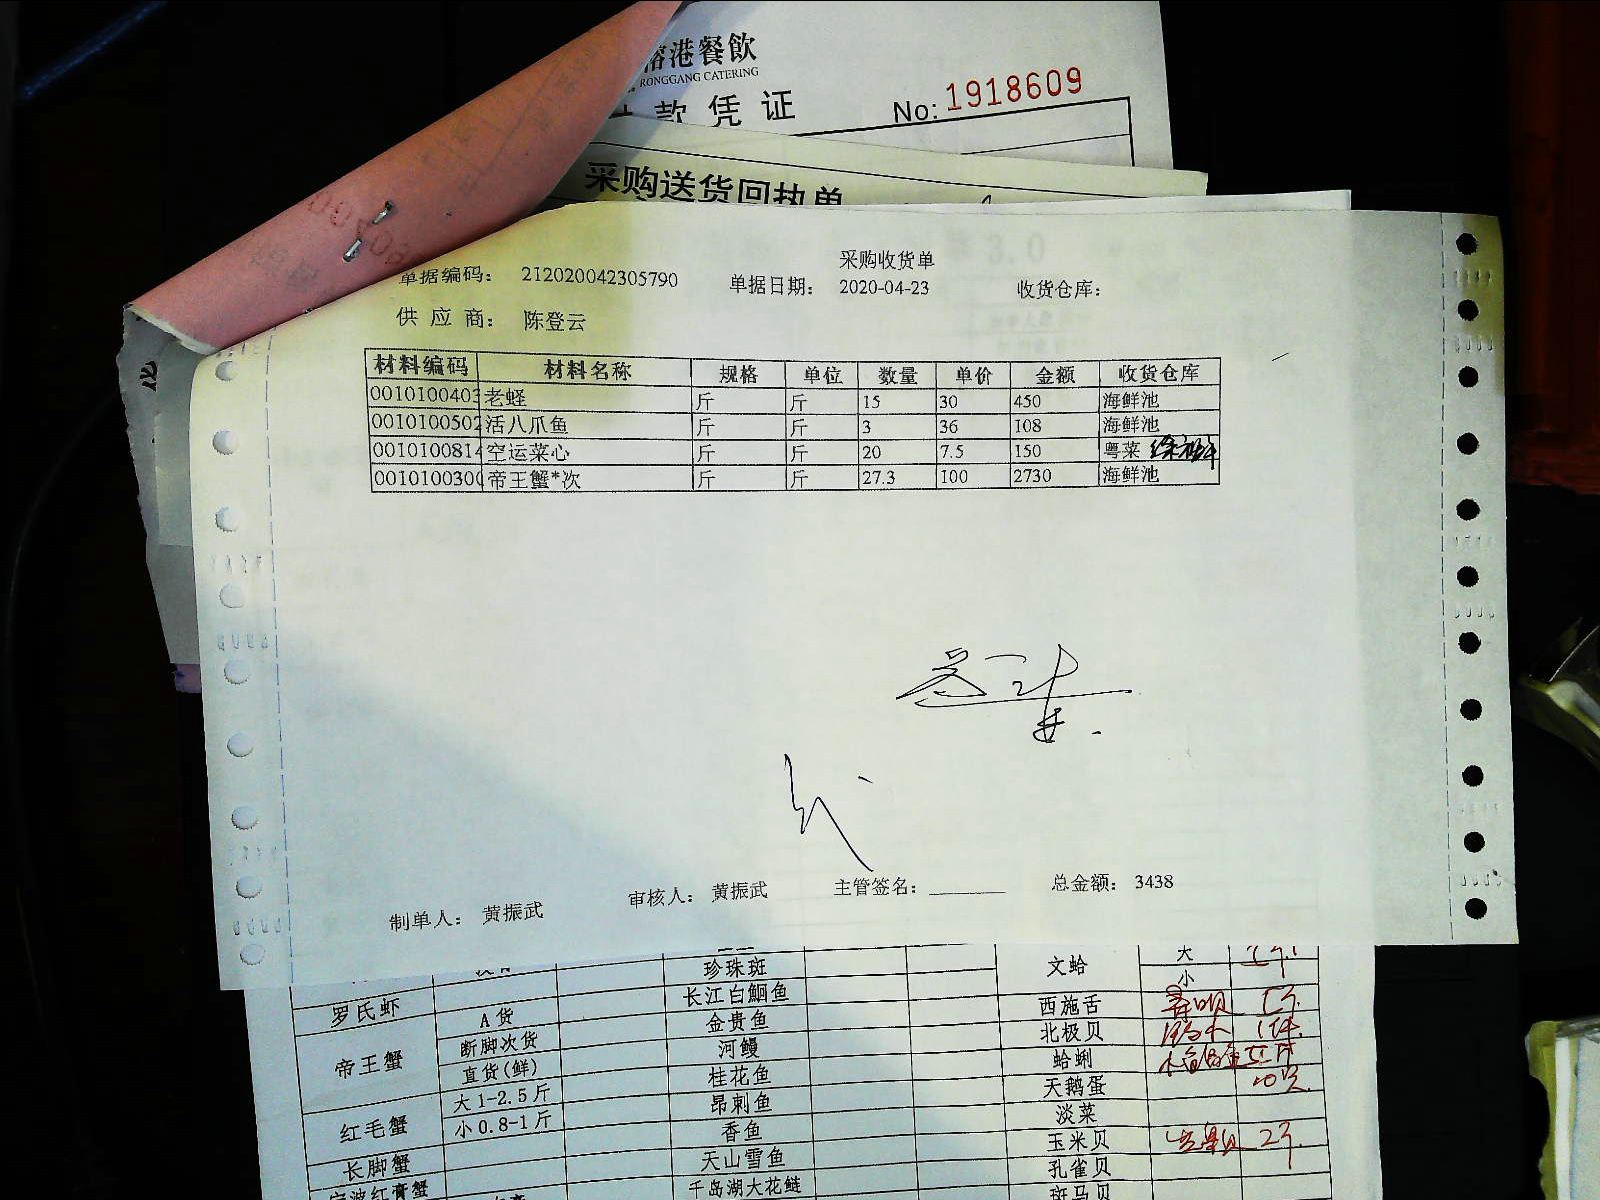 港餐飲
RONGGANG CATERING
款凭证 No: 1918609
采购送货回执单
采购收货单
单据编码： 212020042305790 单据日期： 2020-04-23 收货仓库：
供应商： 陈登云
材料编码 材料名称 规格 单位 数量 单价 金额 收货仓库
0010100403 老蛏 斤 斤 15 30 450 海鲜池
0010100502 活八爪鱼 斤 斤 3 36 108 海鲜池
0010100814 空运菜心 斤 斤 20 7.5 150 粤菜
0010100300 帝王蟹*次 斤 斤 27.3 100 2730 海鲜池
制单人： 黄振武 审核人： 黄振武 主管签名： 总金额： 3438
珍珠斑 文蛤 大
小
罗氏虾 长江白鮰鱼 西施舌
A货 金贵鱼 北极贝
帝王蟹 断脚次货 河鳗 蛤蜊
直货(鲜) 桂花鱼 天鹅蛋
红毛蟹 大1-2.5斤 昂刺鱼 淡菜
小0.8-1斤 香鱼 玉米贝 2斤
长脚蟹 天山雪鱼 孔雀贝
宁波红膏蟹 千岛湖大花鲢 斑马贝